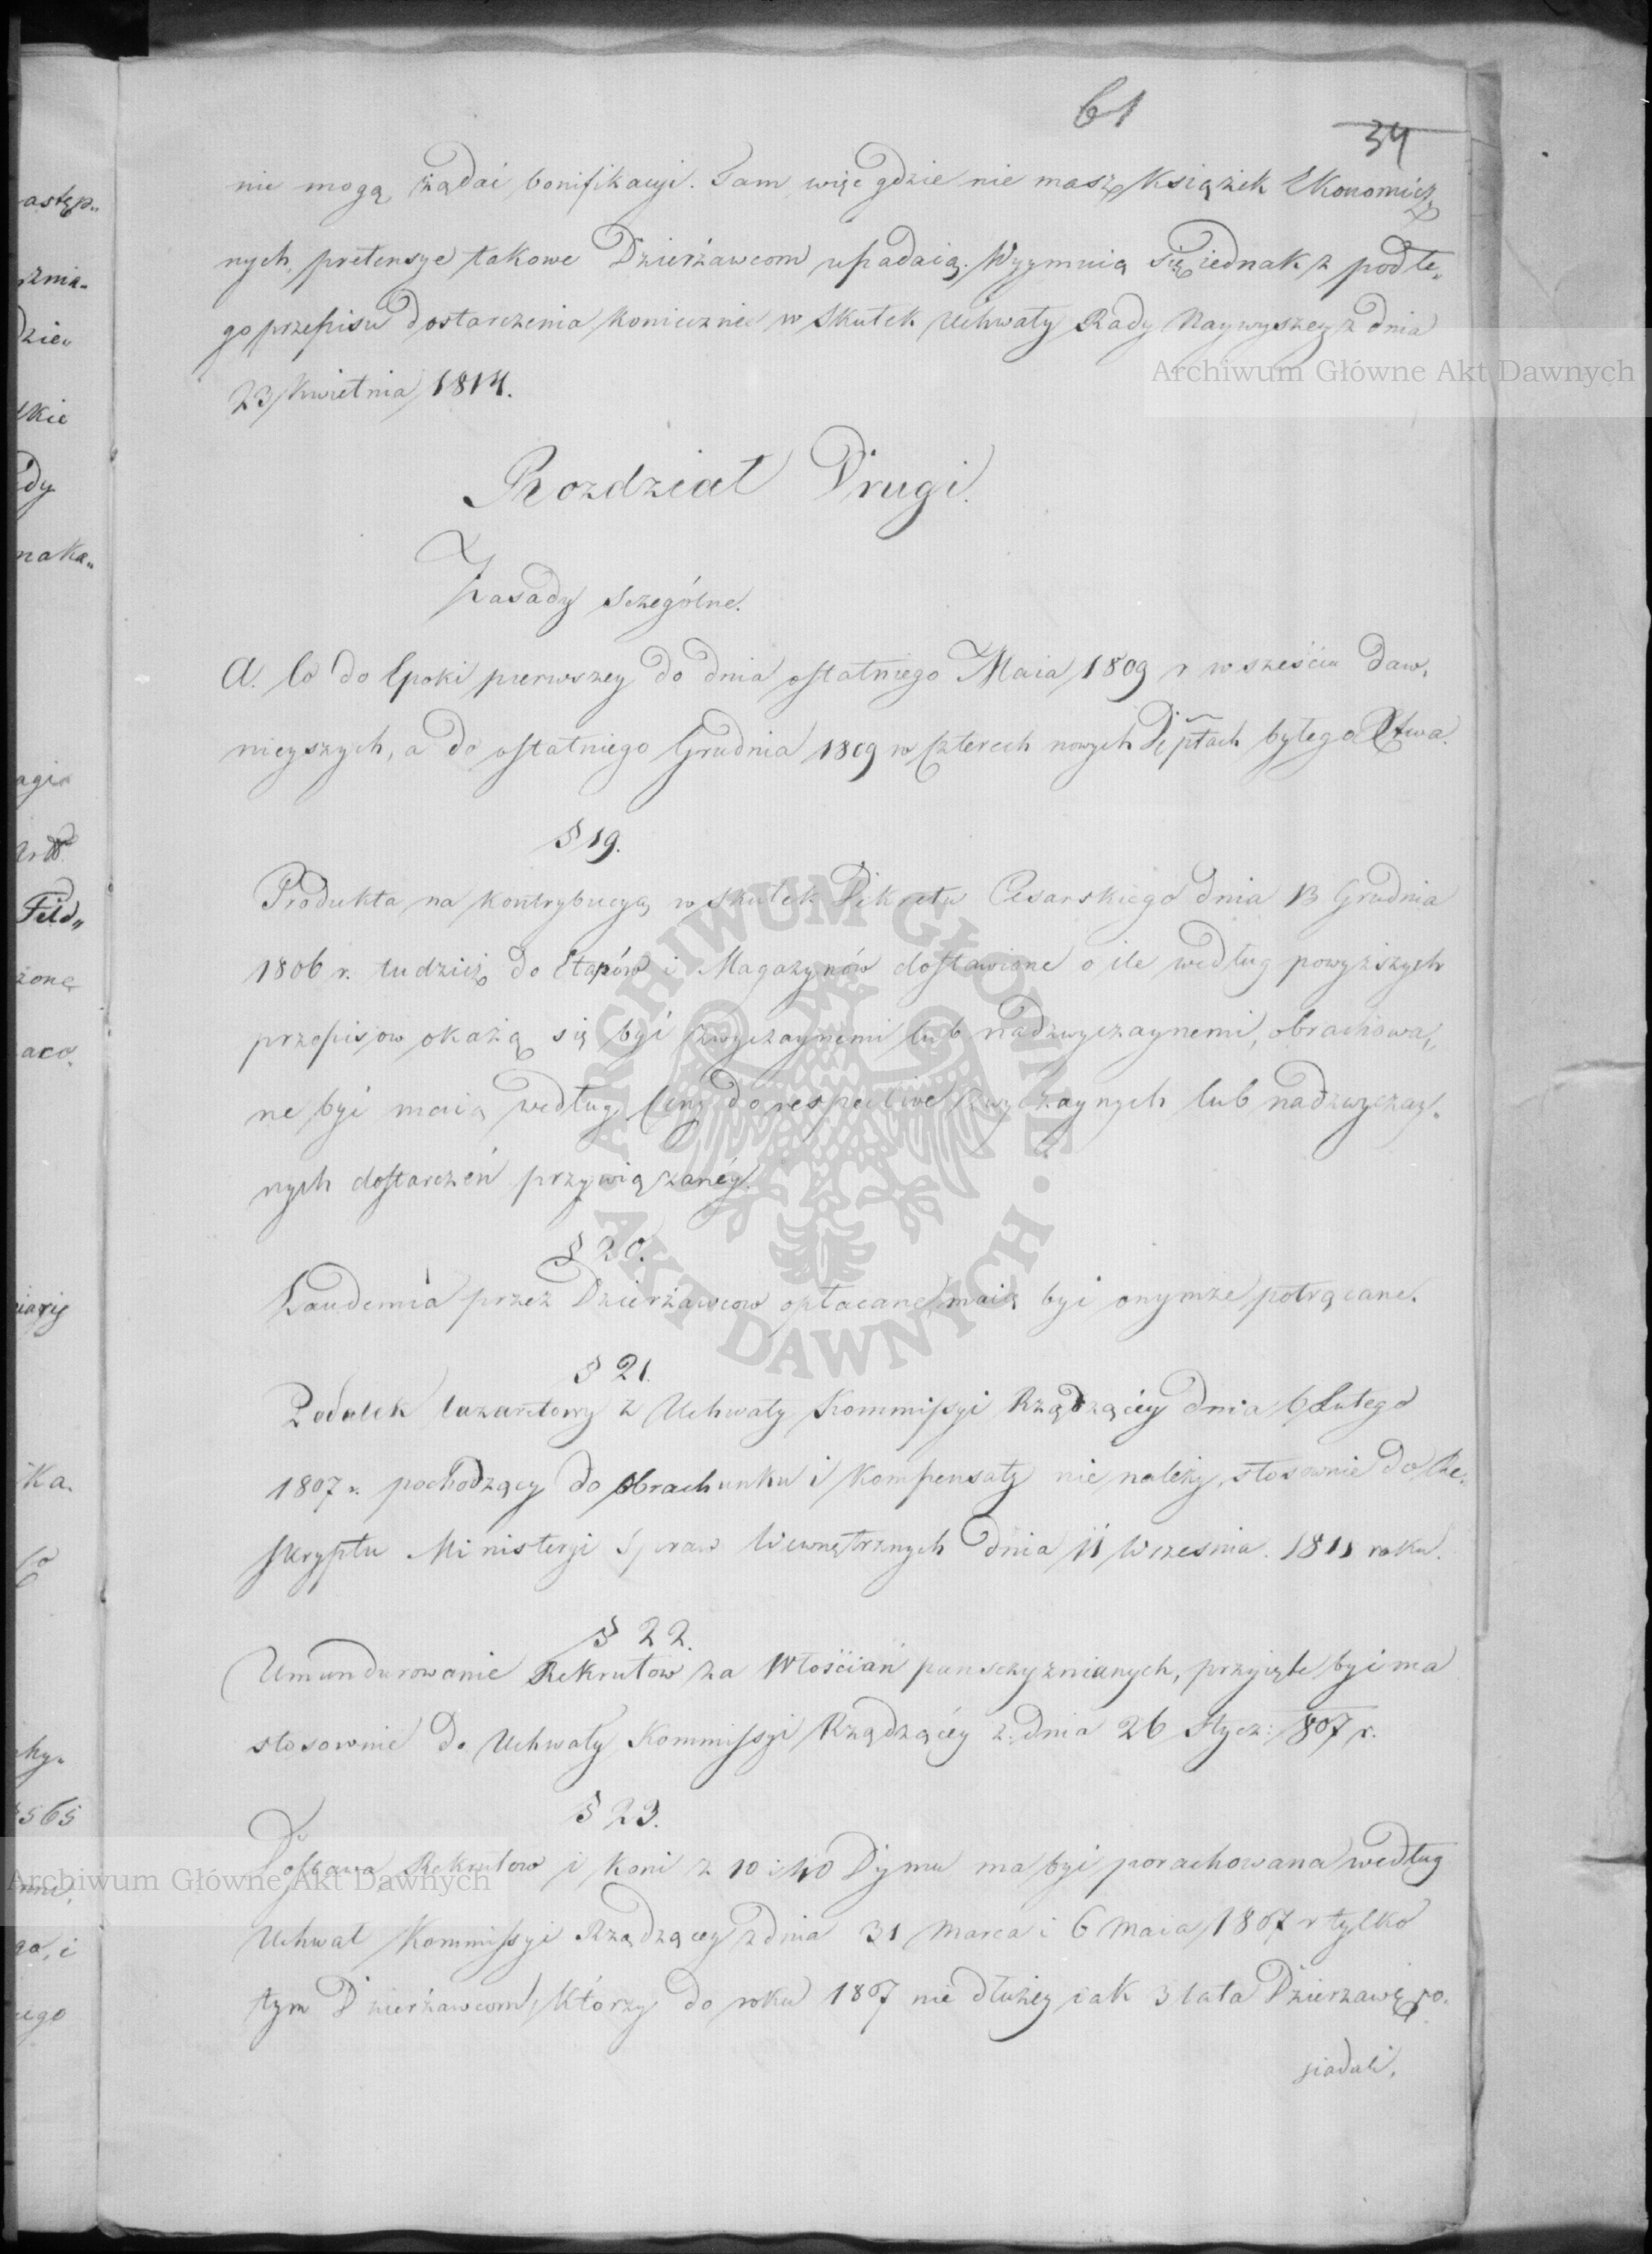 61
34
nie mogą żądać bonifikacyi. Tam więc gdzie nie masz Książek Ekonomicz„
nych, pretensye takowe Dzierżawcom upadaią. Wyymuią się iednak z pod te„
go przepisu dostarczenia konieczne w skutek Uchwały Rady Naywyszey z dnia
23 Kwietnia 1814.
Rozdział Drugi.
Zasady sczególne.
A. Co do Epoki pierwszey do dnia ostatniego Maia 1809 r w sześciu daw„
nieyszych, a do ostatniego Grudnia 1809 w czterech nowych Dptach byłego Xtwa.
§ 19.
Produkta na kontrybucyą w skutek Dekretu Cesarskiego dnia 13 Grudnia
1806 r. tudzież do Etapów i Magazynów dostawione o ile według powyższych
przepisow okażą się być zwyczaynemi lub nadzwyczaynemi, obrachowa„
ne być maią według ceny do respective zwyczaynych lub nadzwyczay„
nych dostarczeń przywiązanéy.
§ 20.
Laudemia przez Dzierżawcow opłacane maią być onymże potrącane.
§ 21.
Podatek lazaretowy z Uchwały Kommissyi Rządzącéy dnia 6 Lutego
1807 r. pochodzący do obrachunku i kompensaty nie należy, stosownie do Re„
skryptu Ministeryi Spraw Wewnętrznych dnia 11 Wrzesnia 1811 roku.
§ 22.
Umundurowanie Rekrutow za Włościan panszczyznianych, przyięte być ma
stosownie do Uchwały Kommissyi Rządzącéy z dnia 26 Stycz: 1807 r.
§ 23.
Dostawa Rekrutow i koni z 10 i 40 Dymu ma być porachowana według
Uchwał Kommissyi Rządzącey z dnia 31 Marca i 6 Maia 1807 r tylko
tym Dzierżawcom, którzy do roku 1807 nie dłużey iak 3 lata Dzierżawę po„
siadali.
Archiwum Główne Akt Dawnych
ARCHIWUM GŁÓWNE
AKT DAWNYCH
Archiwum Główne Akt Dawnych